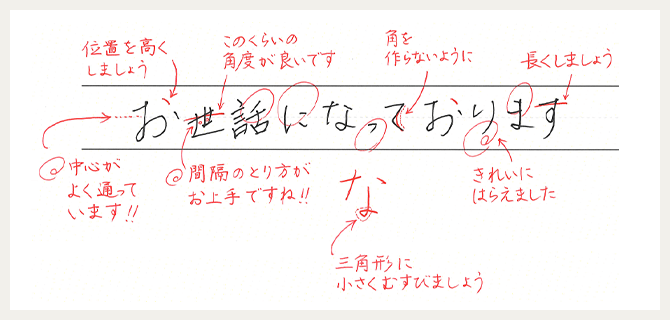 位置を高く
しましょう
このくらいの
角度が良いです
角を
作らないように
長くしましょう
お世話になっております
中心が
よく通って
います!!
間隔のとり方が
お上手ですね!!
な
きれいに
はらえました
三角形に
小さくむすびましょう